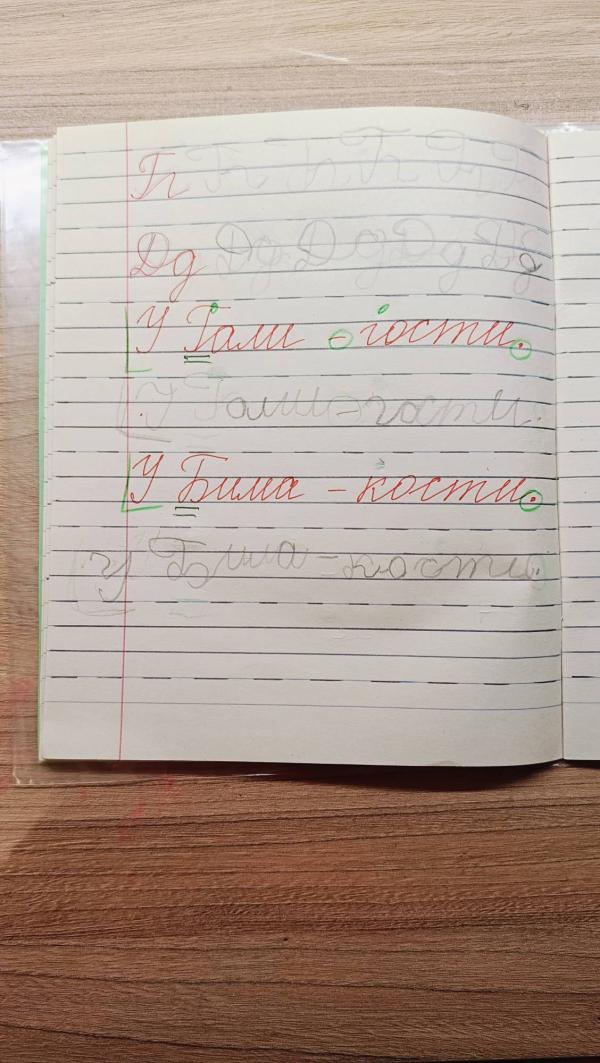 Гг Гг Гг Гг Гг
Дд Дд Дд Дд Дд
У Гали - гости.
У Гали - гости.
У Бима - кости.
У Бима - кости.